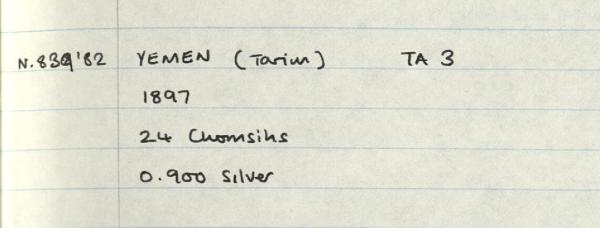 N.839'82 YEMEN (Tarim) TA 3
1897
24 Chomsihs
0.900 Silver